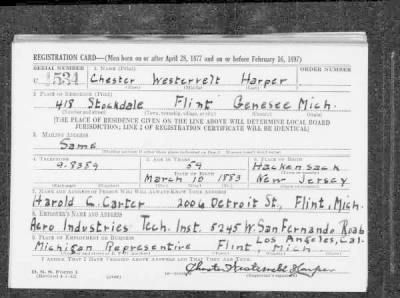 REGISTRATION CARD—(Men born on or after April 28, 1877 and on or before February 16, 1897)
SERIAL NUMBER 1. NAME (Print) ORDER NUMBER
U 1534 Chester Westervelt Harper
(First) (Middle) (Last)
2. PLACE OF RESIDENCE (Print)
418 Stockdale Flint Genesee Mich.
(Number and street) (Town, township, village, or city) (County) (State)
[THE PLACE OF RESIDENCE GIVEN ON THE LINE ABOVE WILL DETERMINE LOCAL BOARD
JURISDICTION; LINE 2 OF REGISTRATION CERTIFICATE WILL BE IDENTICAL]
3. MAILING ADDRESS
Same
4. TELEPHONE 5. AGE IN YEARS 6. PLACE OF BIRTH
9-8359 59 Hackensack
DATE OF BIRTH
March 10 1883 New Jersey
(Exchange) (Number) (Mo.) (Day) (Yr.) (State or country)
7. NAME AND ADDRESS OF PERSON WHO WILL ALWAYS KNOW YOUR ADDRESS
Harold G. Carter 2006 Detroit St, Flint, Mich.
8. EMPLOYER'S NAME AND ADDRESS
Aero Industries Tech. Inst. 5245 W. San Fernando Road
Los Angeles, Cal.
9. PLACE OF EMPLOYMENT OR BUSINESS
Michigan Representive Flint, Mich
I AFFIRM THAT I HAVE VERIFIED ABOVE ANSWERS AND THAT THEY ARE TRUE.
D. S. S. Form 1
(Revised 4-1-42) Chester Westervelt Harper